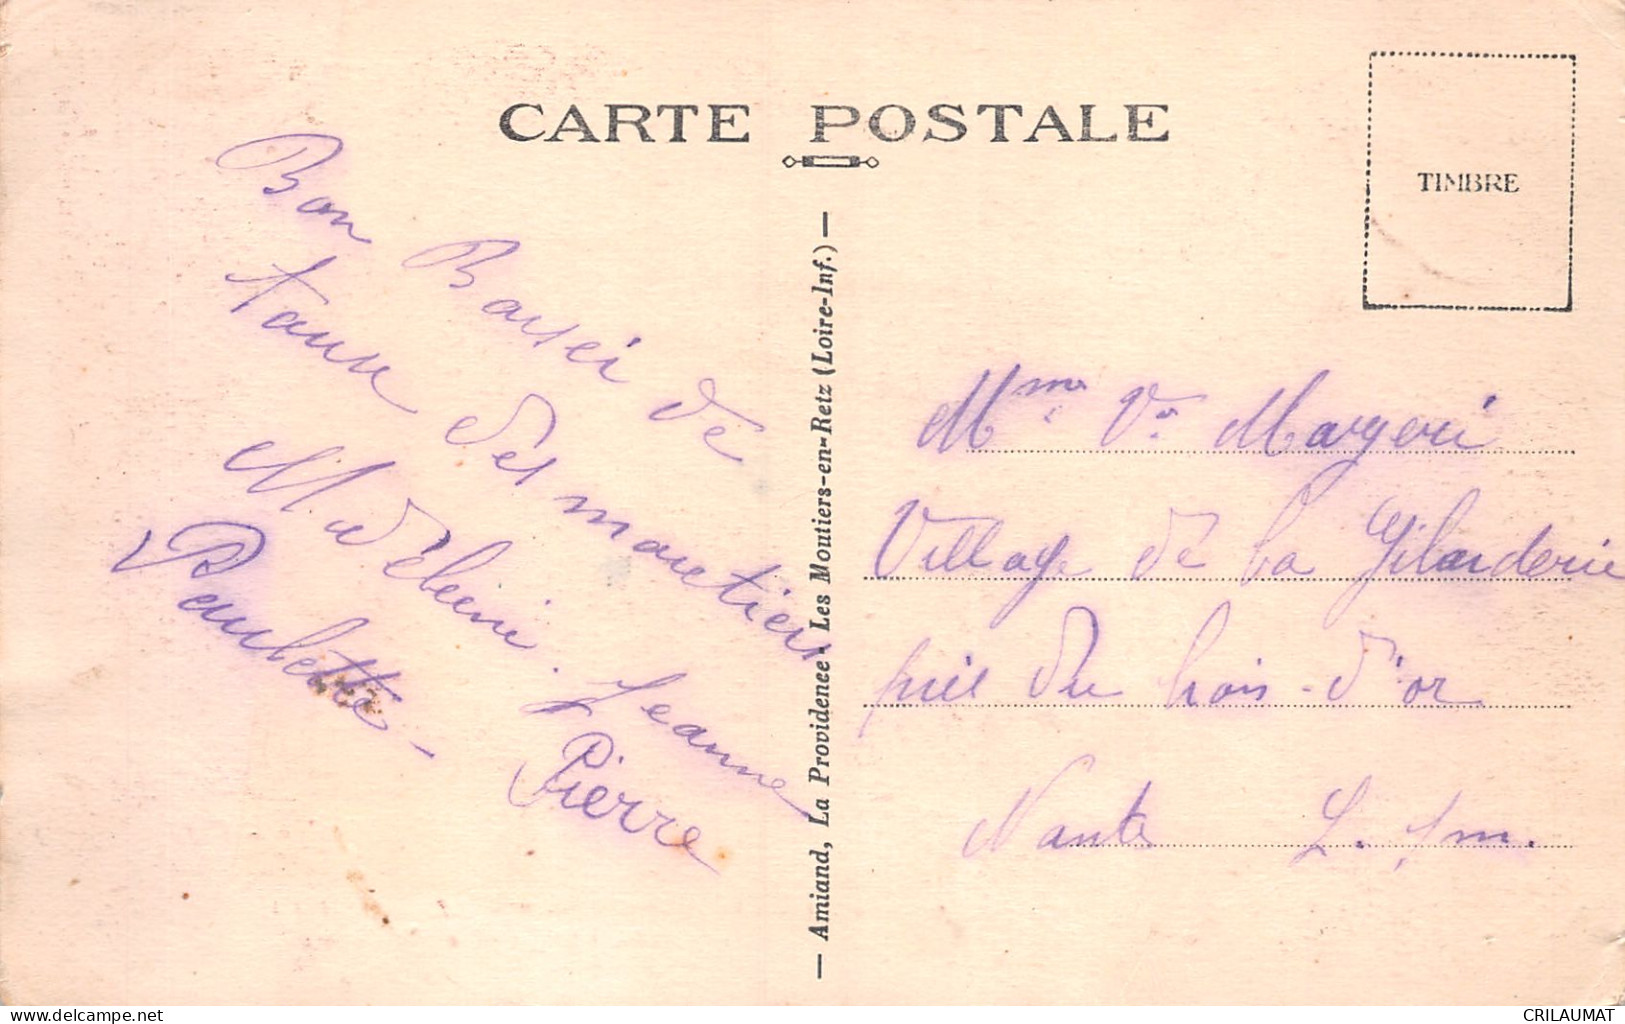 CARTE POSTALE
TIMBRE
Bon Baisei de
tous des moutiers
Madeleine. Jeanne
Paulette - Pierre
— Amiand, La Providence - Les Moutiers-en-Retz (Loire-Inf.) —
Mme Ve Margerie
Village de la Gilarderie
près du bois d'or
Nante L. Im.
www.delcampe.net
CRILAUMAT